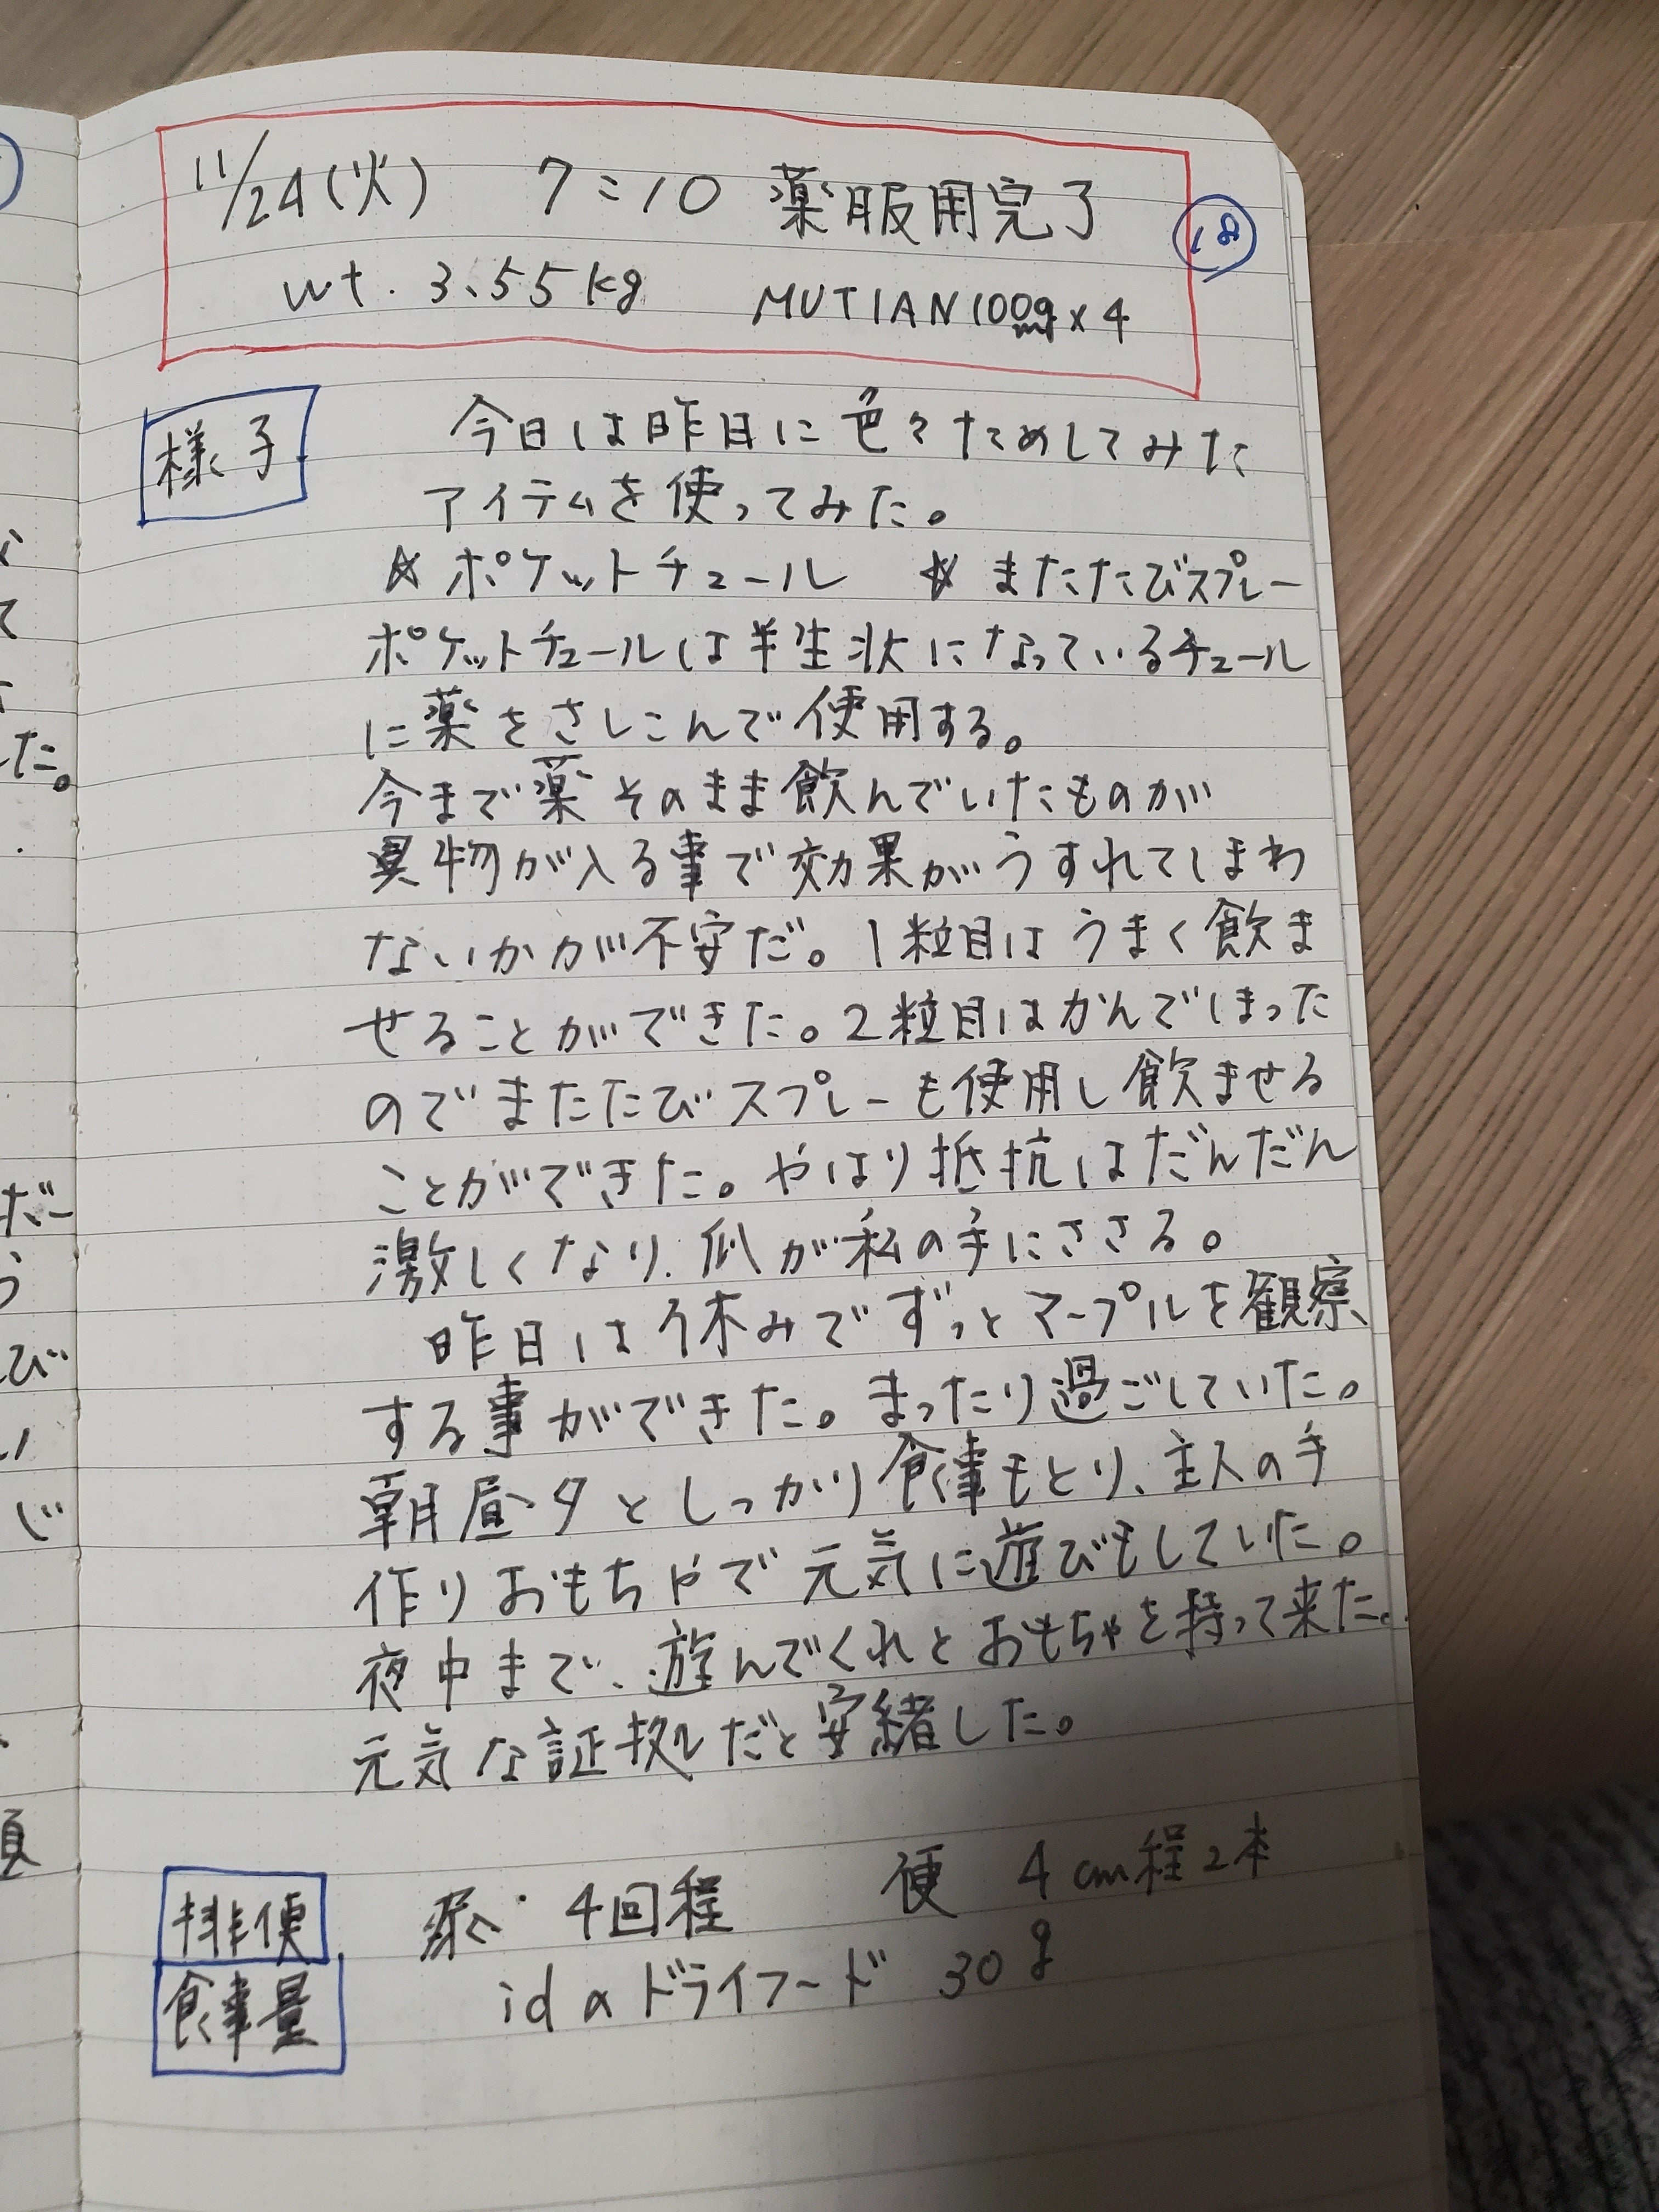 11/24(火) 7:10 薬服用完了
⑱
wt. 3.55kg MUTIAN100mg×4
様子
今日は昨日に色々ためしてみた
アイテムを使ってみた。
☆ポケットチュール ☆またたびスプレー
ポケットチュールは半生状になっているチュール
に薬をさしこんで使用する。
今まで薬そのまま飲んでいたものが
異物が入る事で効果がうすれてしまわ
ないかが不安だ。1粒目はうまく飲ま
せることができた。2粒目はかんでしまった
のでまたたびスプレーも使用し飲ませる
ことができた。やはり抵抗はだんだん
激しくなり、爪が私の手にささる。
昨日は休みでずっとマープルを観察
する事ができた。まったり過ごしていた。
朝昼夕としっかり食事もとり、主人の手
作りおもちゃで元気に遊びもしていた。
夜中まで、遊んでくれとおもちゃを持って来た。
元気な証拠だと安緒した。
排便 尿 4回程 便 4cm程2本
食事量 idのドライフード 30g
た。
だ
う
び
い
じ